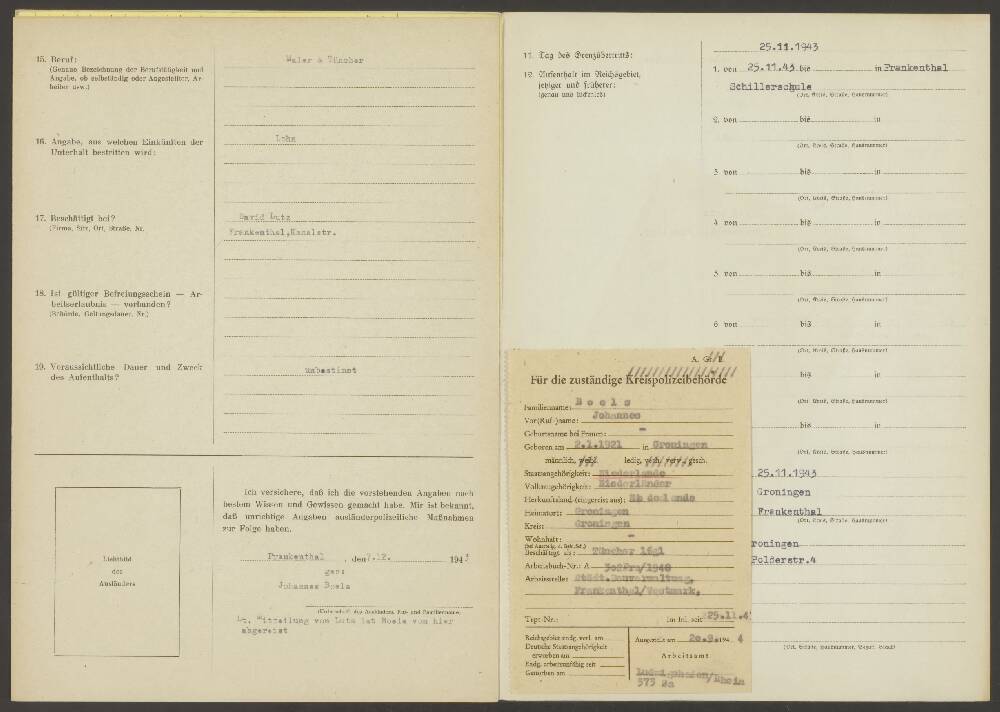 15. Beruf:
(Genaue Bezeichnung der Berufstätigkeit und
Angabe, ob selbständig oder Angestellter, Ar-
beiter usw.)
Maler & Tüncher
16. Angabe, aus welchen Einkünften der
Unterhalt bestritten wird:
Lohn
17. Beschäftigt bei?
(Firma, Sitz, Ort, Straße, Nr.
David Lutz
Frankenthal, Kanalstr.
18. Ist gültiger Befreiungsschein — Ar-
beitserlaubnis — vorhanden?
(Behörde, Geltungsdauer, Nr.)
19. Voraussichtliche Dauer und Zweck
des Aufenthalts?
unbestimt
Lichtbild
des
Ausländers
Ich versichere, daß ich die vorstehenden Angaben nach
bestem Wissen und Gewissen gemacht habe. Mir ist bekannt,
daß unrichtige Angaben ausländerpolizeiliche Maßnahmen
zur Folge haben.
Frankenthal, den 7.12. 1943
gez:
Johannes Boels
(Unterschrift des Ausländers, Vor- und Familienname)
Lt. Mitteilung von Lutz ist Boels von hier
abgereist
11. Tag des Grenzübertritts:
25.11.1943
12. Aufenthalt im Reichsgebiet,
jetziger und früherer:
(genau und lückenlos)
1. von 25.11.43 bis in Frankenthal
Schillerschule
(Ort, Kreis, Straße, Hausnummer)
2. von bis in
(Ort, Kreis, Straße, Hausnummer)
3. von bis in
(Ort, Kreis, Straße, Hausnummer)
4. von bis in
(Ort, Kreis, Straße, Hausnummer)
5. von bis in
(Ort, Kreis, Straße, Hausnummer)
6. von bis in
(Ort, Kreis, Straße, Hausnummer)
bis in
(Ort, Kreis, Straße, Hausnummer)
bis in
(Ort, Kreis, Straße, Hausnummer)
25.11.1943
Groningen
Frankenthal
(Ort, Kreis, Straße, Hausnummer)
roningen
Polßerstr.4
Für die zuständige Kreispolizeibehörde
Familienname: Boels
Vor(Ruf-)name: Johannes
Geburtsname bei Frauen: -
Geboren am 2.1.1921 in Groningen
männlich, weibl. ledig, verh. verw. gesch.
Staatsangehörigkeit: Niederlande
Volkszugehörigkeit: Niederländer
Herkunftsland (eingereist aus): Niederlande
Heimatort: Groningen
Kreis: Groningen
Wohnhaft: -
Beschäftigt als: Tüncher
Arbeitsbuch-Nr.: A
Arbeitsstelle: Städt. Bauverwaltung,
Frankenthal/Westmark,
Tgpr.-Nr.: Im Inl. seit 25.11.4
Reichsgebiet endg. verl. am
Deutsche Staatsangehörigkeit
erworben am
Endg. arbeitsunfähig seit
Gestorben am
Ausgestellt am 20.9. 194 4
Arbeitsamt
Ludwigshafen/Rhein
575 Ba